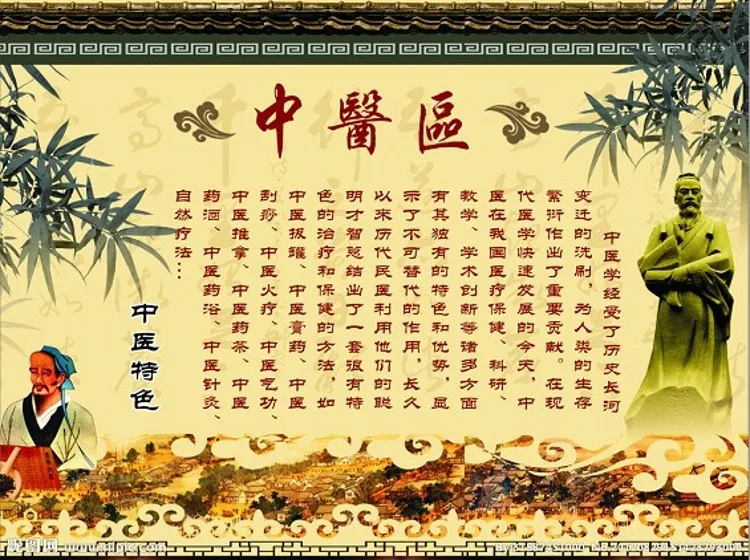 中醫區
中医学经受了历史长河
变迁的洗刷，为人类的生存
繁衍作出了重要贡献。在现
代医学快速发展的今天，中
医在我国医疗保健、科研、
教学、学术创新等诸多方面
有其独有的特色和优势，显
示了不可替代的作用，长久
以来历代民医利用他们的聪
明才智总结出了一套很有特
色的治疗和保健的方法，如
中医拔罐、中医膏药、中医
刮痧、中医火疗、中医气功、
中医推拿、中医药茶、中医
药酒、中医药浴、中医针灸、
自然疗法…
中医特色
昵图网 www.nipic.com